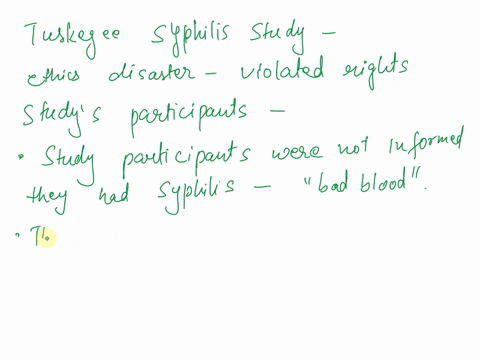 Tuskegee Syphilis Study –
ethics disaster – violated rights
Study's participants –
• Study participants were not informed
they had Syphilis – "bad blood".
• Th